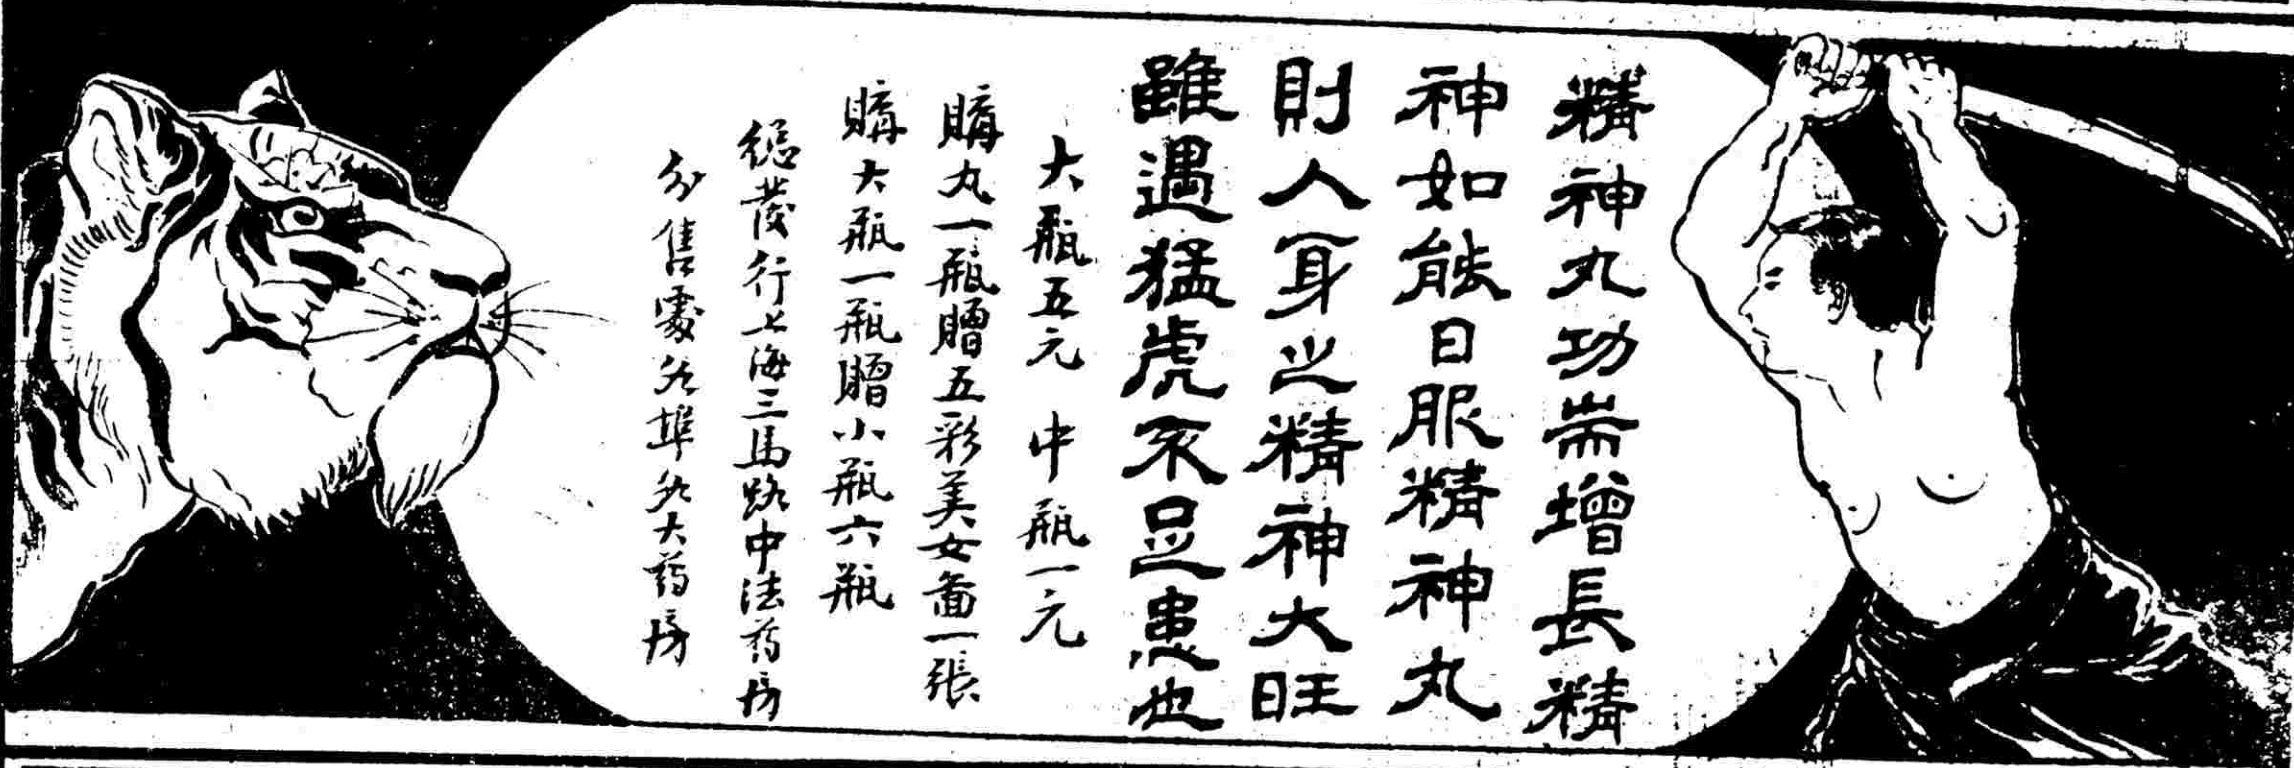 精神丸功耑增長精
神如能日服精神丸
則人身之精神大旺
雖遇猛虎不足患也
大瓶五元 中瓶一元
購丸一瓶贈五彩美女畵一張
購大瓶一瓶贈小瓶六瓶
總發行上海三馬路中法药房
分售處各埠各大药房